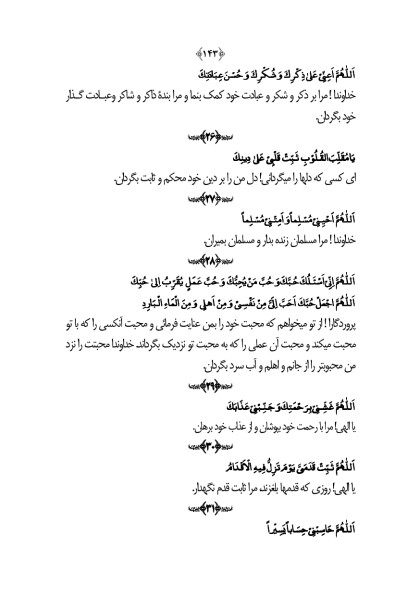 ﴿۱۴۳﴾
اَللّٰهُمَّ اَعِنِّیْ عَلٰی ذِکْرِكَ وَ شُکْرِكَ وَ حُسْنِ عِبَادَتِكَ
خداوندا! مرا بر ذکر و شکر و عبادت خود کمک بنما و مرا بندۀ ذاکر و شاکر وعبـادت گـذار
خود بگردان.
﴿۲۶﴾
یَا مُقَلِّبَ الْقُلُوْبِ ثَبِّتْ قَلْبِیْ عَلٰی دِیْنِكَ
ای کسی که دلها را میگردانی! دل من را بر دین خود محکم و ثابت بگردان.
﴿۲۷﴾
اَللّٰهُمَّ اَحْیِنِیْ مُسْلِماً وَ اَمِتْنِیْ مُسْلِماً
خداوندا! مرا مسلمان زنده بدار و مسلمان بمیران.
﴿۲۸﴾
اَللّٰهُمَّ اِنِّیْ اَسْئَلُكَ حُبَّكَ وَ حُبَّ مَنْ یُّحِبُّكَ وَ حُبَّ عَمَلٍ یُّقَرِّبُ اِلٰی حُبِّكَ
اَللّٰهُمَّ اجْعَلْ حُبَّكَ اَحَبَّ اِلَیَّ مِنْ نَفْسِیْ وَ مِنْ اَهْلِی وَ مِنَ الْمَاءِ الْبَارِدِ
پروردگارا! از تو میخواهم که محبت خود را بمن عنایت فرمائی و محبت آنکسی را که با تو
محبت میکند و محبت آن عملی را که به محبت تو نزدیک بگرداند خداوندا محبتت را نزد
من محبوبتر را از جانم و اهلم و آب سرد بگردان.
﴿۲۹﴾
اَللّٰهُمَّ غَشِّنِیْ بِرَحْمَتِكَ وَ جَنِّبْنِیْ عَذَابَكَ
یا الهی! مرا با رحمت خود بپوشان و از عذاب خود برهان.
﴿۳۰﴾
اَللّٰهُمَّ ثَبِّتْ قَدَمَیَّ یَوْمَ تَزِلُّ فِیْهِ الْاَقْدَامُ
یا الهی! روزی که قدمها بلغزند مرا ثابت قدم نگهدار.
﴿۳۱﴾
اَللّٰهُمَّ حَاسِبْنِیْ حِسَاباً یَّسِیْراً